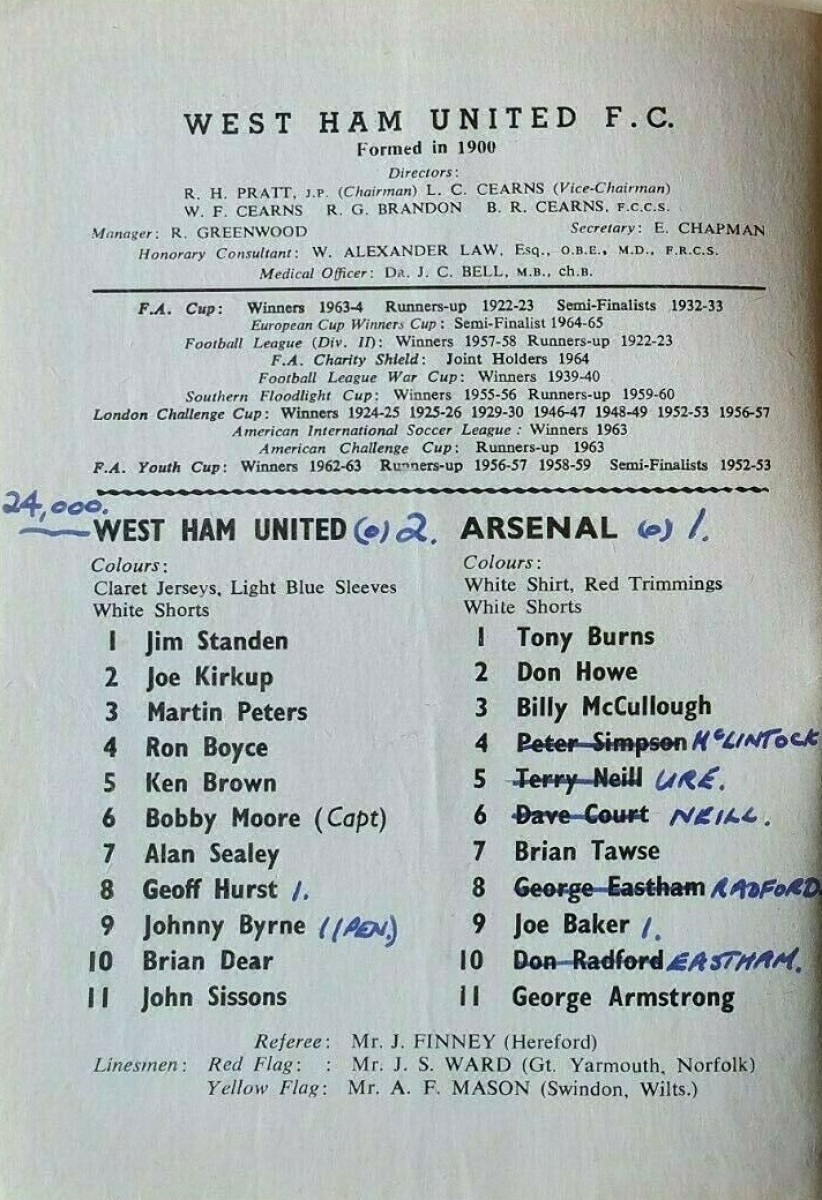 WEST HAM UNITED F.C.
Formed in 1900
Directors:
R. H. PRATT, J.P. (Chairman) L. C. CEARNS (Vice-Chairman)
W. F. CEARNS R. G. BRANDON B. R. CEARNS, F.C.C.S.
Manager: R. GREENWOOD Secretary: E. CHAPMAN
Honorary Consultant: W. ALEXANDER LAW, Esq., O.B.E., M.D., F.R.C.S.
Medical Officer: DR. J. C. BELL, M.B., ch.B.
F.A. Cup: Winners 1963-4 Runners-up 1922-23 Semi-Finalists 1932-33
European Cup Winners Cup: Semi-Finalist 1964-65
Football League (Div. II): Winners 1957-58 Runners-up 1922-23
F.A. Charity Shield: Joint Holders 1964
Football League War Cup: Winners 1939-40
Southern Floodlight Cup: Winners 1955-56 Runners-up 1959-60
London Challenge Cup: Winners 1924-25 1925-26 1929-30 1946-47 1948-49 1952-53 1956-57
American International Soccer League: Winners 1963
American Challenge Cup: Runners-up 1963
F.A. Youth Cup: Winners 1962-63 Runners-up 1956-57 1958-59 Semi-Finalists 1952-53
24,000.
WEST HAM UNITED (0) 2. ARSENAL (0) 1.
Colours: Colours:
Claret Jerseys, Light Blue Sleeves White Shirt, Red Trimmings
White Shorts White Shorts
1 Jim Standen 1 Tony Burns
2 Joe Kirkup 2 Don Howe
3 Martin Peters 3 Billy McCullough
4 Ron Boyce 4 Peter Simpson McLINTOCK
5 Ken Brown 5 Terry Neill URE.
6 Bobby Moore (Capt) 6 Dave Court NEILL.
7 Alan Sealey 7 Brian Tawse
8 Geoff Hurst 1. 8 George Eastham RADFORD.
9 Johnny Byrne 1(PEN.) 9 Joe Baker 1.
10 Brian Dear 10 Don Radford EASTHAM.
11 John Sissons 11 George Armstrong
Referee: Mr. J. FINNEY (Hereford)
Linesmen: Red Flag: : Mr. J. S. WARD (Gt. Yarmouth, Norfolk)
Yellow Flag: Mr. A. F. MASON (Swindon, Wilts.)